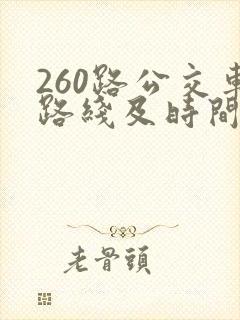 260路公交車
路綫及時間
老骨頭